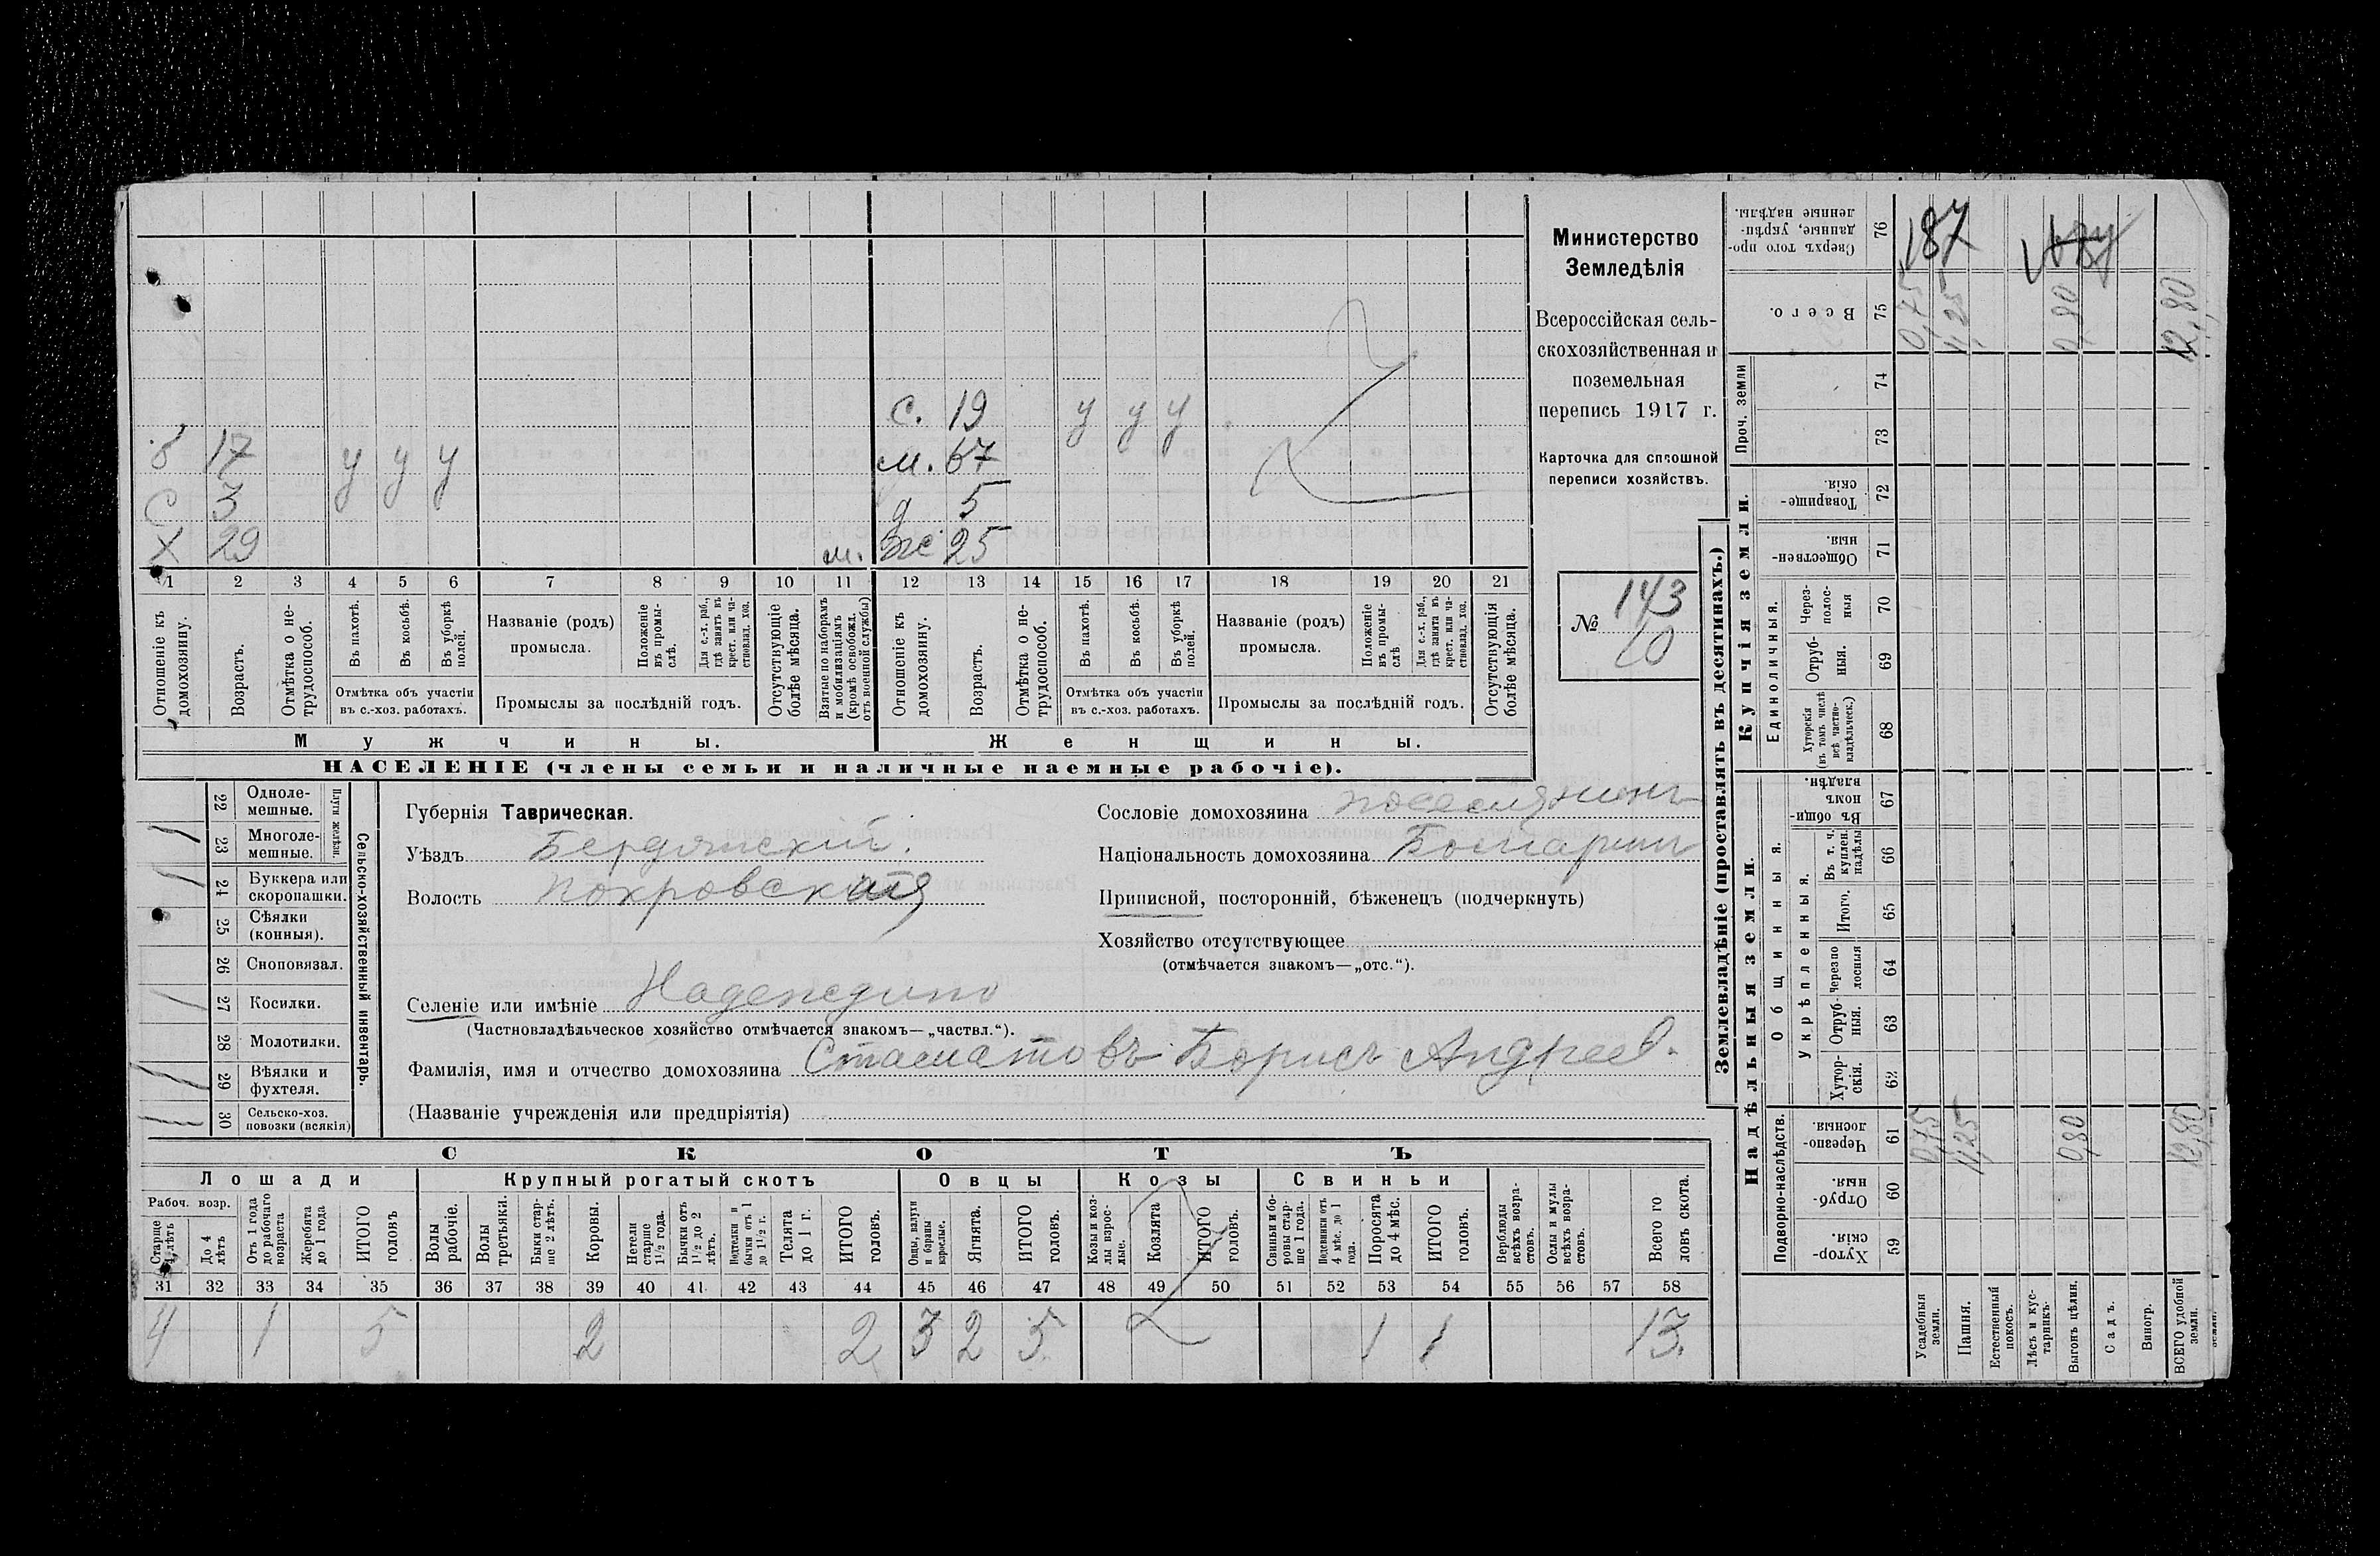 Министерство
Земледѣлія
Всероссійская сель-
скохозяйственная и
поземельная
перепись 1917 г.
Карточка для сплошной
переписи хозяйствъ.
№ 143
10
с. 19 у у у
б 17 у у у м. 67
с 3 д 5
х 29 м. ж 25
1 2 3 4 5 6 7 8 9 10 11 12 13 14 15 16 17 18 19 20 21
Отношеніе къ домохозяину.
Возрастъ.
Отмѣтка о не-трудоспособ.
Въ пахотѣ.
Въ косьбѣ.
Въ уборкѣ полей.
Отмѣтка объ участіи
въ с.-хоз. работахъ.
Названіе (родъ)
промысла.
Положеніе въ промы-слѣ.
Для с.-х. раб., гдѣ занятъ въ крест. или ча-стновлад. хоз.
Промыслы за послѣдній годъ.
Отсутствующіе болѣе мѣсяца.
Взятые по наборамъ и мобилизаціямъ (кромѣ освобожд. отъ военной службы)
Отношеніе къ домохозяину.
Возрастъ.
Отмѣтка о не-трудоспособ.
Въ пахотѣ.
Въ косьбѣ.
Въ уборкѣ полей.
Отмѣтка объ участіи
въ с.-хоз. работахъ.
Названіе (родъ)
промысла.
Положеніе въ промы-слѣ
Для с.-х. раб., гдѣ занята въ крест. или ча-стновлад. хоз.
Промыслы за послѣдній годъ.
Отсутствующія болѣе мѣсяца.
Мужчины.
Женщины.
НАСЕЛЕНІЕ (члены семьи и наличные наемные рабочіе).
22 Одноле-мешные.
23 Многоле-мешные.
Плуги желѣзн.
24 Буккера или скоропашки.
25 Сѣялки (конныя).
26 Сноповязал.
27 Косилки.
28 Молотилки.
29 Вѣялки и фухтеля.
30 Сельско-хоз. повозки (всякія)
Сельско-хозяйственный инвентарь.
Губернія Таврическая.
Уѣздъ Бердянскій.
Волость Покровская
Селеніе или имѣніе Надеждино
(Частновладѣльческое хозяйство отмѣчается знакомъ—„частвл.“).
Фамилія, имя и отчество домохозяина Стаматовъ Борисъ Андреев.
(Названіе учрежденія или предпріятія)
Сословіе домохозяина поселянинъ
Національность домохозяина Болгаринъ
Приписной, посторонній, бѣженецъ (подчеркнуть)
Хозяйство отсутствующее
(отмѣчается знакомъ—„отс.“).
СКОТЪ
Лошади
Крупный рогатый скотъ
Овцы
Козы
Свиньи
Рабоч. возр.
Старше 4 лѣтъ
До 4 лѣтъ
Отъ 1 года до рабочаго возраста
Жеребята до 1 года
ИТОГО головъ
Волы рабочіе.
Волы третьяки.
Быки стар-ше 2 лѣтъ.
Коровы.
Нетели старше 1½ года.
Бычки отъ 1½ до 2 лѣтъ.
Подтелки и бычки отъ 1 до 1½ г.
Телята до 1 г.
ИТОГО головъ.
Овцы, валухи и бараны взрослые.
Ягнята.
ИТОГО головъ.
Козы и коз-лы взрос-лые.
Козлята
ИТОГО головъ.
Свиньи и бо-ровы стар-ше 1 года.
Подсвинки отъ 4 мѣс. до 1 года.
Поросята до 4 мѣс.
ИТОГО головъ.
Верблюды всѣхъ возра-стовъ.
Ослы и мулы всѣхъ возра-стовъ.
Всего го ловъ скота.
31 32 33 34 35 36 37 38 39 40 41 42 43 44 45 46 47 48 49 50 51 52 53 54 55 56 57 58
4 1 5 2 2 3 2 5 1 1 13.
Землевладѣніе (проставлять въ десятинахъ.)
Купчія земли.
Надѣльныя земли.
Сверхъ того про-данные, укрѣп-ленные надѣлы. 76 187
Всего. 75 0,75 11,25 0,80 12,80
Проч. земли
74
73
Товарище-скія. 72
Обществен-ныя. 71
Единоличныя.
Черезполос-ныя 70
Отруб-ныя. 69
Хуторскія (въ томъ числѣ всѣ частно-владѣльческ.) 68
Общинныя.
Въ общин-номъ владѣн. 67
Укрѣпленныя.
Въ т. ч. куплен. надѣлы 66
Итого. 65
Черезпо лосныя 64
Отруб-ныя. 63
Хутор-скія. 62
Подворно-наслѣдств.
Черезпо-лосныя. 61 0,75 11,25 0,80 12,80
Отруб-ныя. 60
Хутор-скія. 59
Усадебныя земли.
Пашня.
Естественный покосъ.
Лѣсъ и кус-тарникъ.
Выгонъ цѣлин.
Садъ.
Виногр.
ВСЕГО удобной земли.